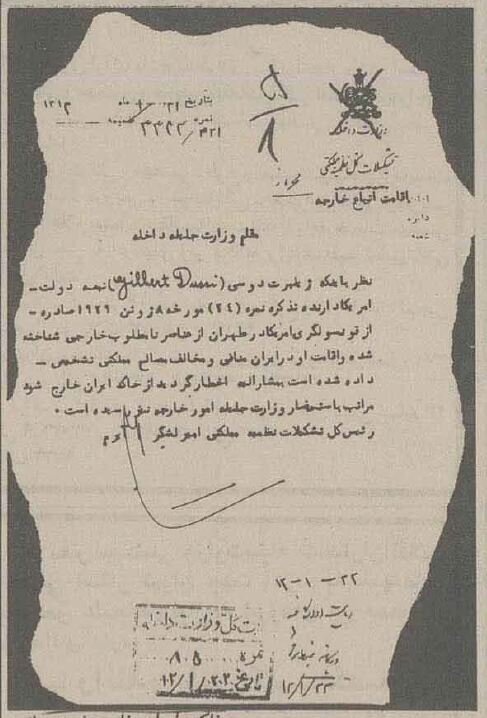 وزارت داخله
تشکیلات کل نظمیه مملکتی
اقامت اتباع خارجه
دایره
شعبه
بتاریخ ماه ۱۳۱۲
نمره ضمیمه
محرمانه
۵
۸
مقام وزارت جلیله داخله
نظر باینکه ژیلبرت دوسی (Gilbert Dussi) تبعه دولت -
امریکا دارنده تذکره نمره (۲۴) مورخه ۸ ژوئن ۱۹۲۹ صادره -
از قونسولگری امریکا در طهران از عناصر نامطلوب خارجی شناخته
شده و اقامت او در ایران منافی و مخالف مصالح مملکتی تشخیص -
داده شده است بمشارالیه اخطار گردید از خاک ایران خارج شود
مراتب با استحضار وزارت جلیله امور خارجه نیز رسیده است .
رئیس کل تشکیلات نظمیه مملکتی امیر لشگر
۱۲-۱-۲۲
ثبت کل وزارت داخله
نمره ۸۰۵
تاریخ ۱۲/۱/۲۲
۱۲/۱/۲۳